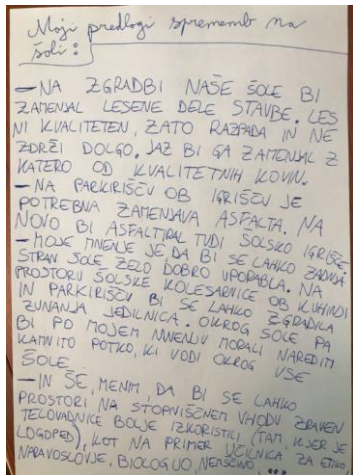 Moji predlogi sprememb na
šoli:
- NA ZGRADBI NAŠE ŠOLE BI
ZAMENJAL LESENE DELE STAVBE. LES
NI KVALITETEN, ZATO RAZPADA IN NE
ZDRŽI DOLGO. JAZ BI GA ZAMENJAL Z
KATERO OD KVALITETNIH KOVIN.
- NA PARKIRIŠČU OB IGRIŠČU JE
POTREBNA ZAMENJAVA ASFALTA. NA
NOVO BI ASFALTIRAL TUDI ŠOLSKO IGRIŠČE.
- MOJE MNENJE JE, DA BI SE LAHKO ZADNJA
STRAN ŠOLE ZELO DOBRO UPORABLA. NA
PROSTORU ŠOLSKE KOLESARNICE OB KUHINJI
IN PARKIRIŠČU BI SE LAHKO ZGRADILA
ZUNANJA JEDILNICA. OKROG ŠOLE PA
BI PO MOJEM MNENJU MORALI NAREDITI
KAMNITO POTKO, KI VODI OKROG VSE
ŠOLE.
- IN ŠE, MENIM, DA BI SE LAHKO
PROSTORI NA STOPNIŠČNEM VHODU ZRAVEN
TELOVADNICE BOLJE IZKORISTILI (TAM, KJER JE
LOGOPED), KOT NA PRIMER UČILNICA ZA ETIKO,
NARAVOSLOVJE, BIOLOGIJO, NEMŠČINO ...